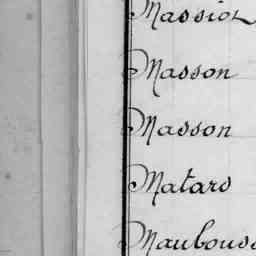 Massiot
Masson
Masson
Matard
Maubouss